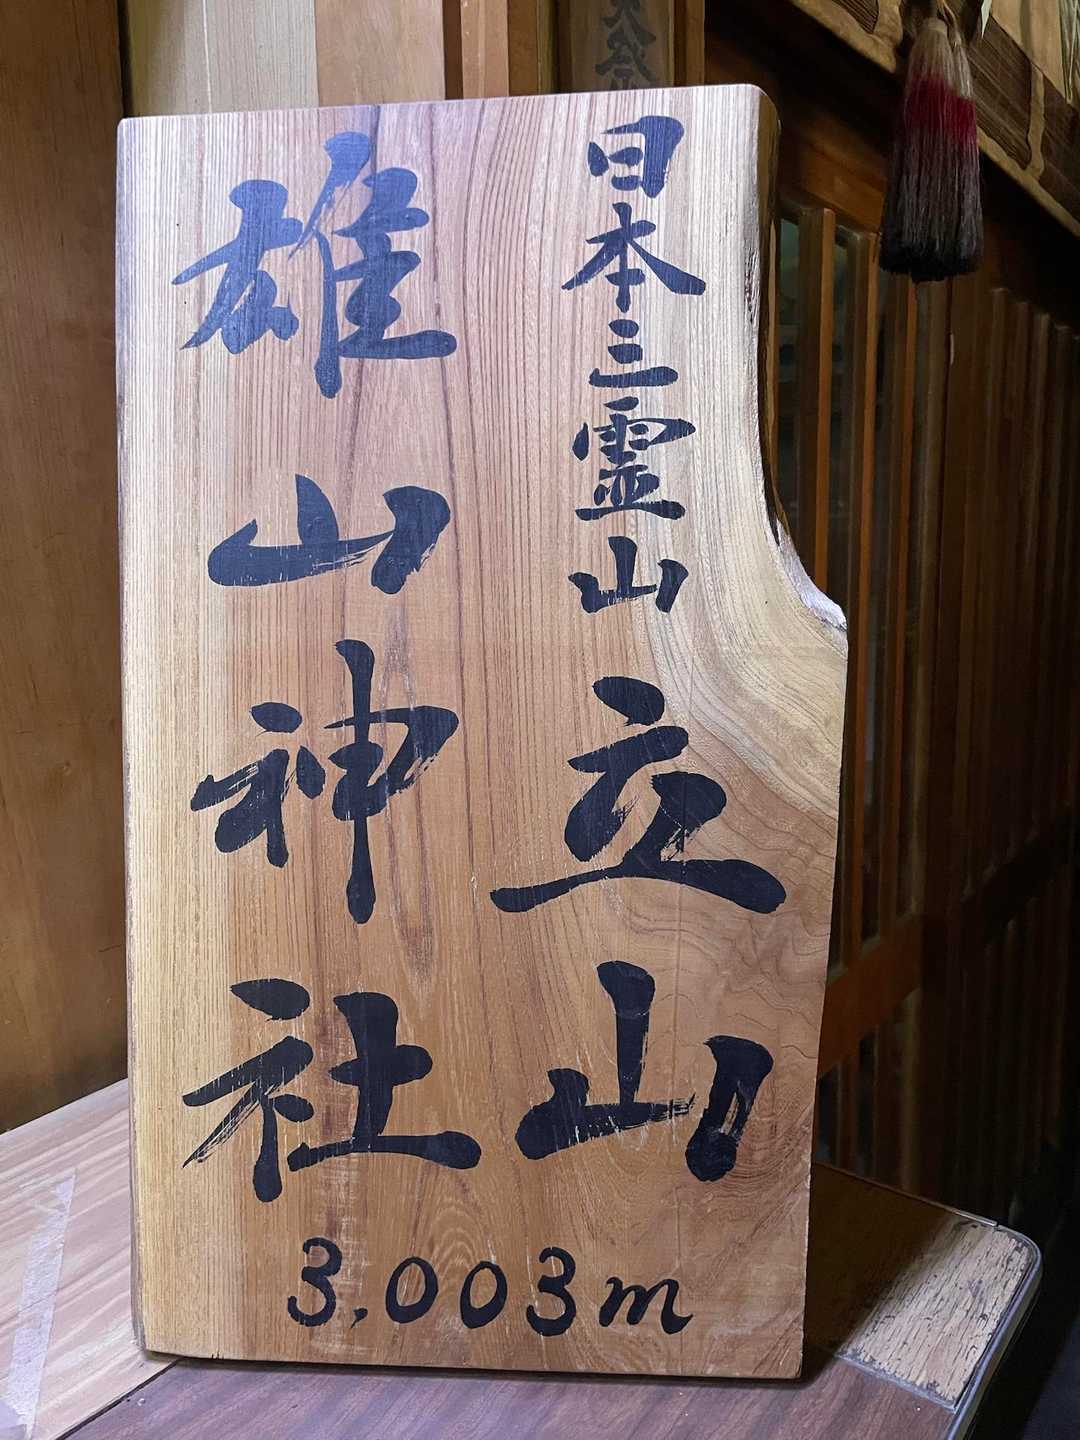 日本三霊山
立山
雄山神社
3.003m